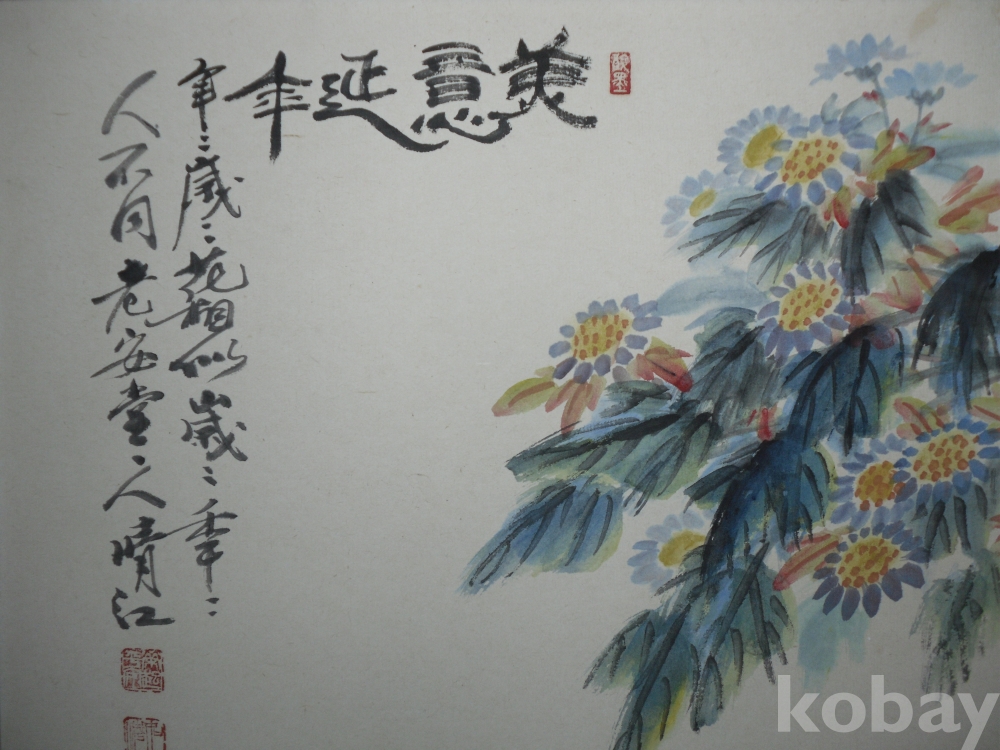 美意延年
年〻歲〻花相似歲〻年〻
人不同老安堂主人晴江
kobay